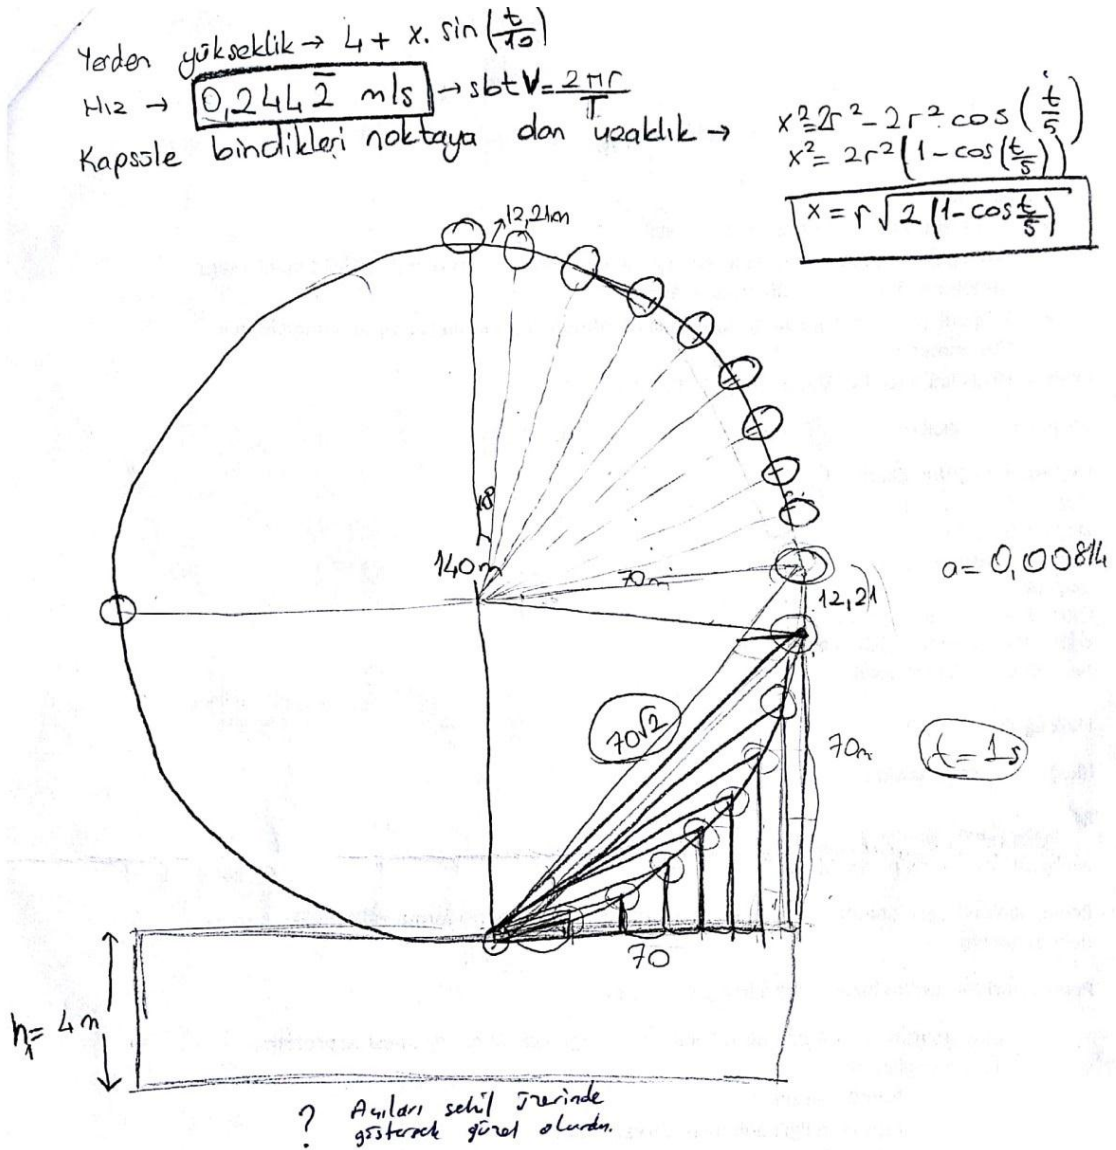 Yerden yükseklik → 4 + x. sin(t/10)
Hız → 0,2442̅ m/s → sbt V = 2πr/T
Kapsüle bindikleri noktaya olan uzaklık →
x² = 2r² - 2r² cos(t/5)
x² = 2r²(1 - cos(t/5))
x = r√2(1 - cos t/5)
12,21m
140m
70m
a = 0,00814
12,21
70√2
70m
t = 1s
70
h₁ = 4m
? Açıları şekil üzerinde
göstersek güzel olurdu.